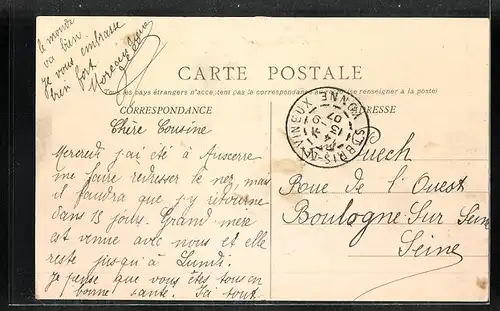 CARTE POSTALE
Tous les pays étrangers n'acceptent pas le correspondance au recto (se renseigner à la poste)
CORRESPONDANCE
ADRESSE
Chère Cousine
Mercredi j'ai été à Auxerre
me faire redresser le nez, mais
il faudra que j'y retourne
dans 15 jours. Grand mère
est venue avec nous et elle
reste jusqu'à Lundi.
je pense que vous êtes tous en
bonne santé. Ici tout
le monde
va bien.
je vous embrasse
bien fort
ST BRIS-LE-VINEUX
YONNE
07
Guech
Rue de l'Ouest
Boulogne Sur Seine
Seine